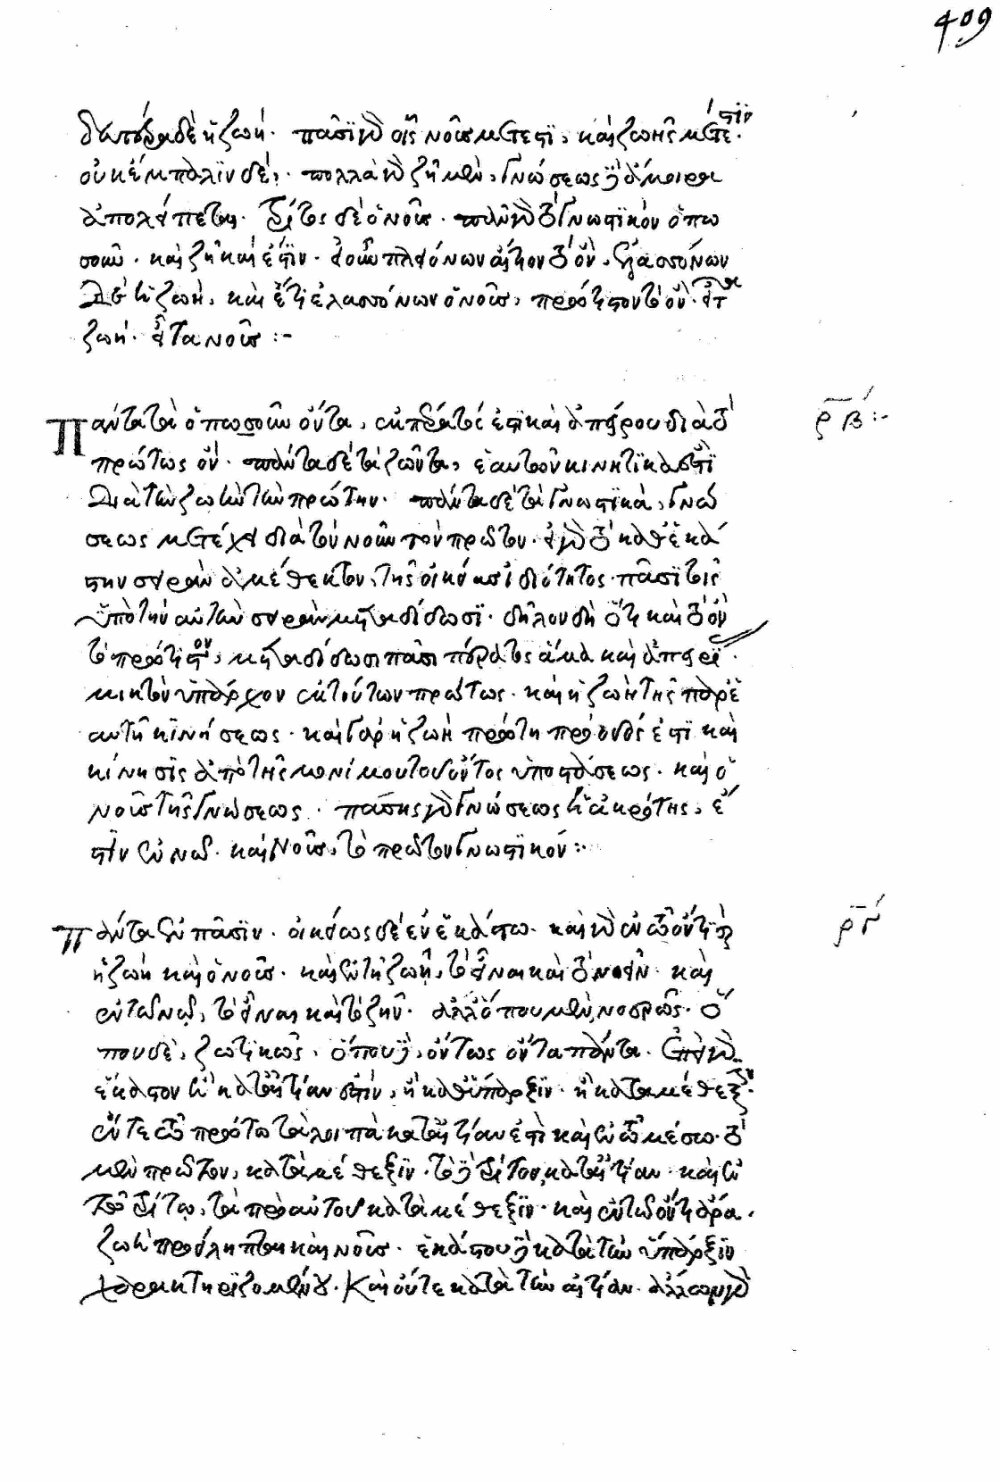 409
δευτέρα δὲ ἡ ζωή. πᾶσι γὰρ οἷς νοῦ μέτεστι, καὶ ζωῆς μέτεστιν.
οὐκ ἔμπαλιν δέ. πολλὰ γὰρ ζῇ μὲν, γνώσεως δὲ ἄμοιρα
ἀπολείπεται. τρίτος δὲ ὁ νοῦς. πᾶν γὰρ τὸ γνωστικὸν ὁπω
σοῦν. καὶ ζῇ καὶ ἔστιν. εἰ οὖν πλειόνων αἴτιον τὸ ὄν, ἐλασσόνων
δὲ ἡ ζωὴ, καὶ ἔτι ἐλασσόνων ὁ νοῦς, πρώτιστον τὸ ὄν. εἶτα
ζωή. εἶτα νοῦς :-
Πάντα τὰ ὁπωσοῦν ὄντα, ἐκ πέρατός ἐστι καὶ ἀπείρου διὰ τὸ
ρβ :-
πρώτως ὄν. πάντα δὲ τὰ ζῶντα, ἑαυτῶν κινητικά ἐστι
διὰ τὴν ζωὴν τὴν πρώτην. πάντα δὲ τὰ γνωστικὰ, γνώ
σεως μετέχει διὰ τὸν νοῦν τὸν πρῶτον. εἰ γὰρ τὸ καθ' ἑκά
στην σειρὰν ἀμέθεκτον, τῆς οἰκείας ἰδιότητος πᾶσι τοῖς
ὑπὸ τὴν αὐτὴν σειρὰν μεταδίδωσι. δῆλον δὴ ὅτι καὶ τὸ ὂν
τὸ πρώτιστον, μεταδίδωσι πᾶσι πέρατος ἅμα καὶ ἀπειρίας.
μικτὸν ὑπάρχον ἐκ τούτων πρώτως. καὶ ἡ ζωὴ τῆς παρ' ἑ
αυτῇ κινήσεως. καὶ γὰρ ἡ ζωὴ πρώτη πρόοδός ἐστι καὶ
κίνησις ἀπὸ τῆς μονίμου τοῦ ὄντος ὑποστάσεως. καὶ ὁ
νοῦς τῆς γνώσεως. πάσης γὰρ γνώσεως ἡ ἀκρότης, ἐ
στὶν ἐν νῷ. καὶ νοῦς, τὸ πρῶτον γνωστικόν :-
Πάντα ἐν πᾶσιν. οἰκείως δὲ ἐν ἑκάστῳ. καὶ γὰρ ἐν τῷ ὄντι καὶ
ργ
ἡ ζωὴ καὶ ὁ νοῦς. καὶ ἐν τῇ ζωῇ, τὸ εἶναι καὶ τὸ νοεῖν. καὶ
ἐν τῷ νῷ, τὸ εἶναι καὶ τὸ ζῆν. ἀλλ' ὅπου μὲν, νοερῶς. ὅ
που δὲ, ζωτικῶς. ὅπου δὲ, ὄντως ὄντα πάντα. ἐπεὶ γὰρ
ἕκαστον ἢ κατ' αἰτίαν ἐστὶν, ἢ καθ' ὕπαρξιν. ἢ κατὰ μέθεξιν.
ἔν τε τῷ πρώτῳ τὰ λοιπὰ κατ' αἰτίαν ἐστὶ καὶ ἐν τῷ μέσῳ. τὸ
μὲν πρῶτον, κατὰ μέθεξιν. τὸ δὲ τρίτον, κατ' αἰτίαν. καὶ ἐν
τῷ τρίτῳ, τὰ πρὸ αὐτοῦ κατὰ μέθεξιν. καὶ ἐν τῷ ὄντι ἄρα.
ζωὴ προείληπται καὶ νοῦς. ἑκάστου δὲ κατὰ τὴν ὕπαρξιν
χαρακτηριζομένου. καὶ οὔτε κατὰ τὴν αἰτίαν. ἄλλων γὰρ